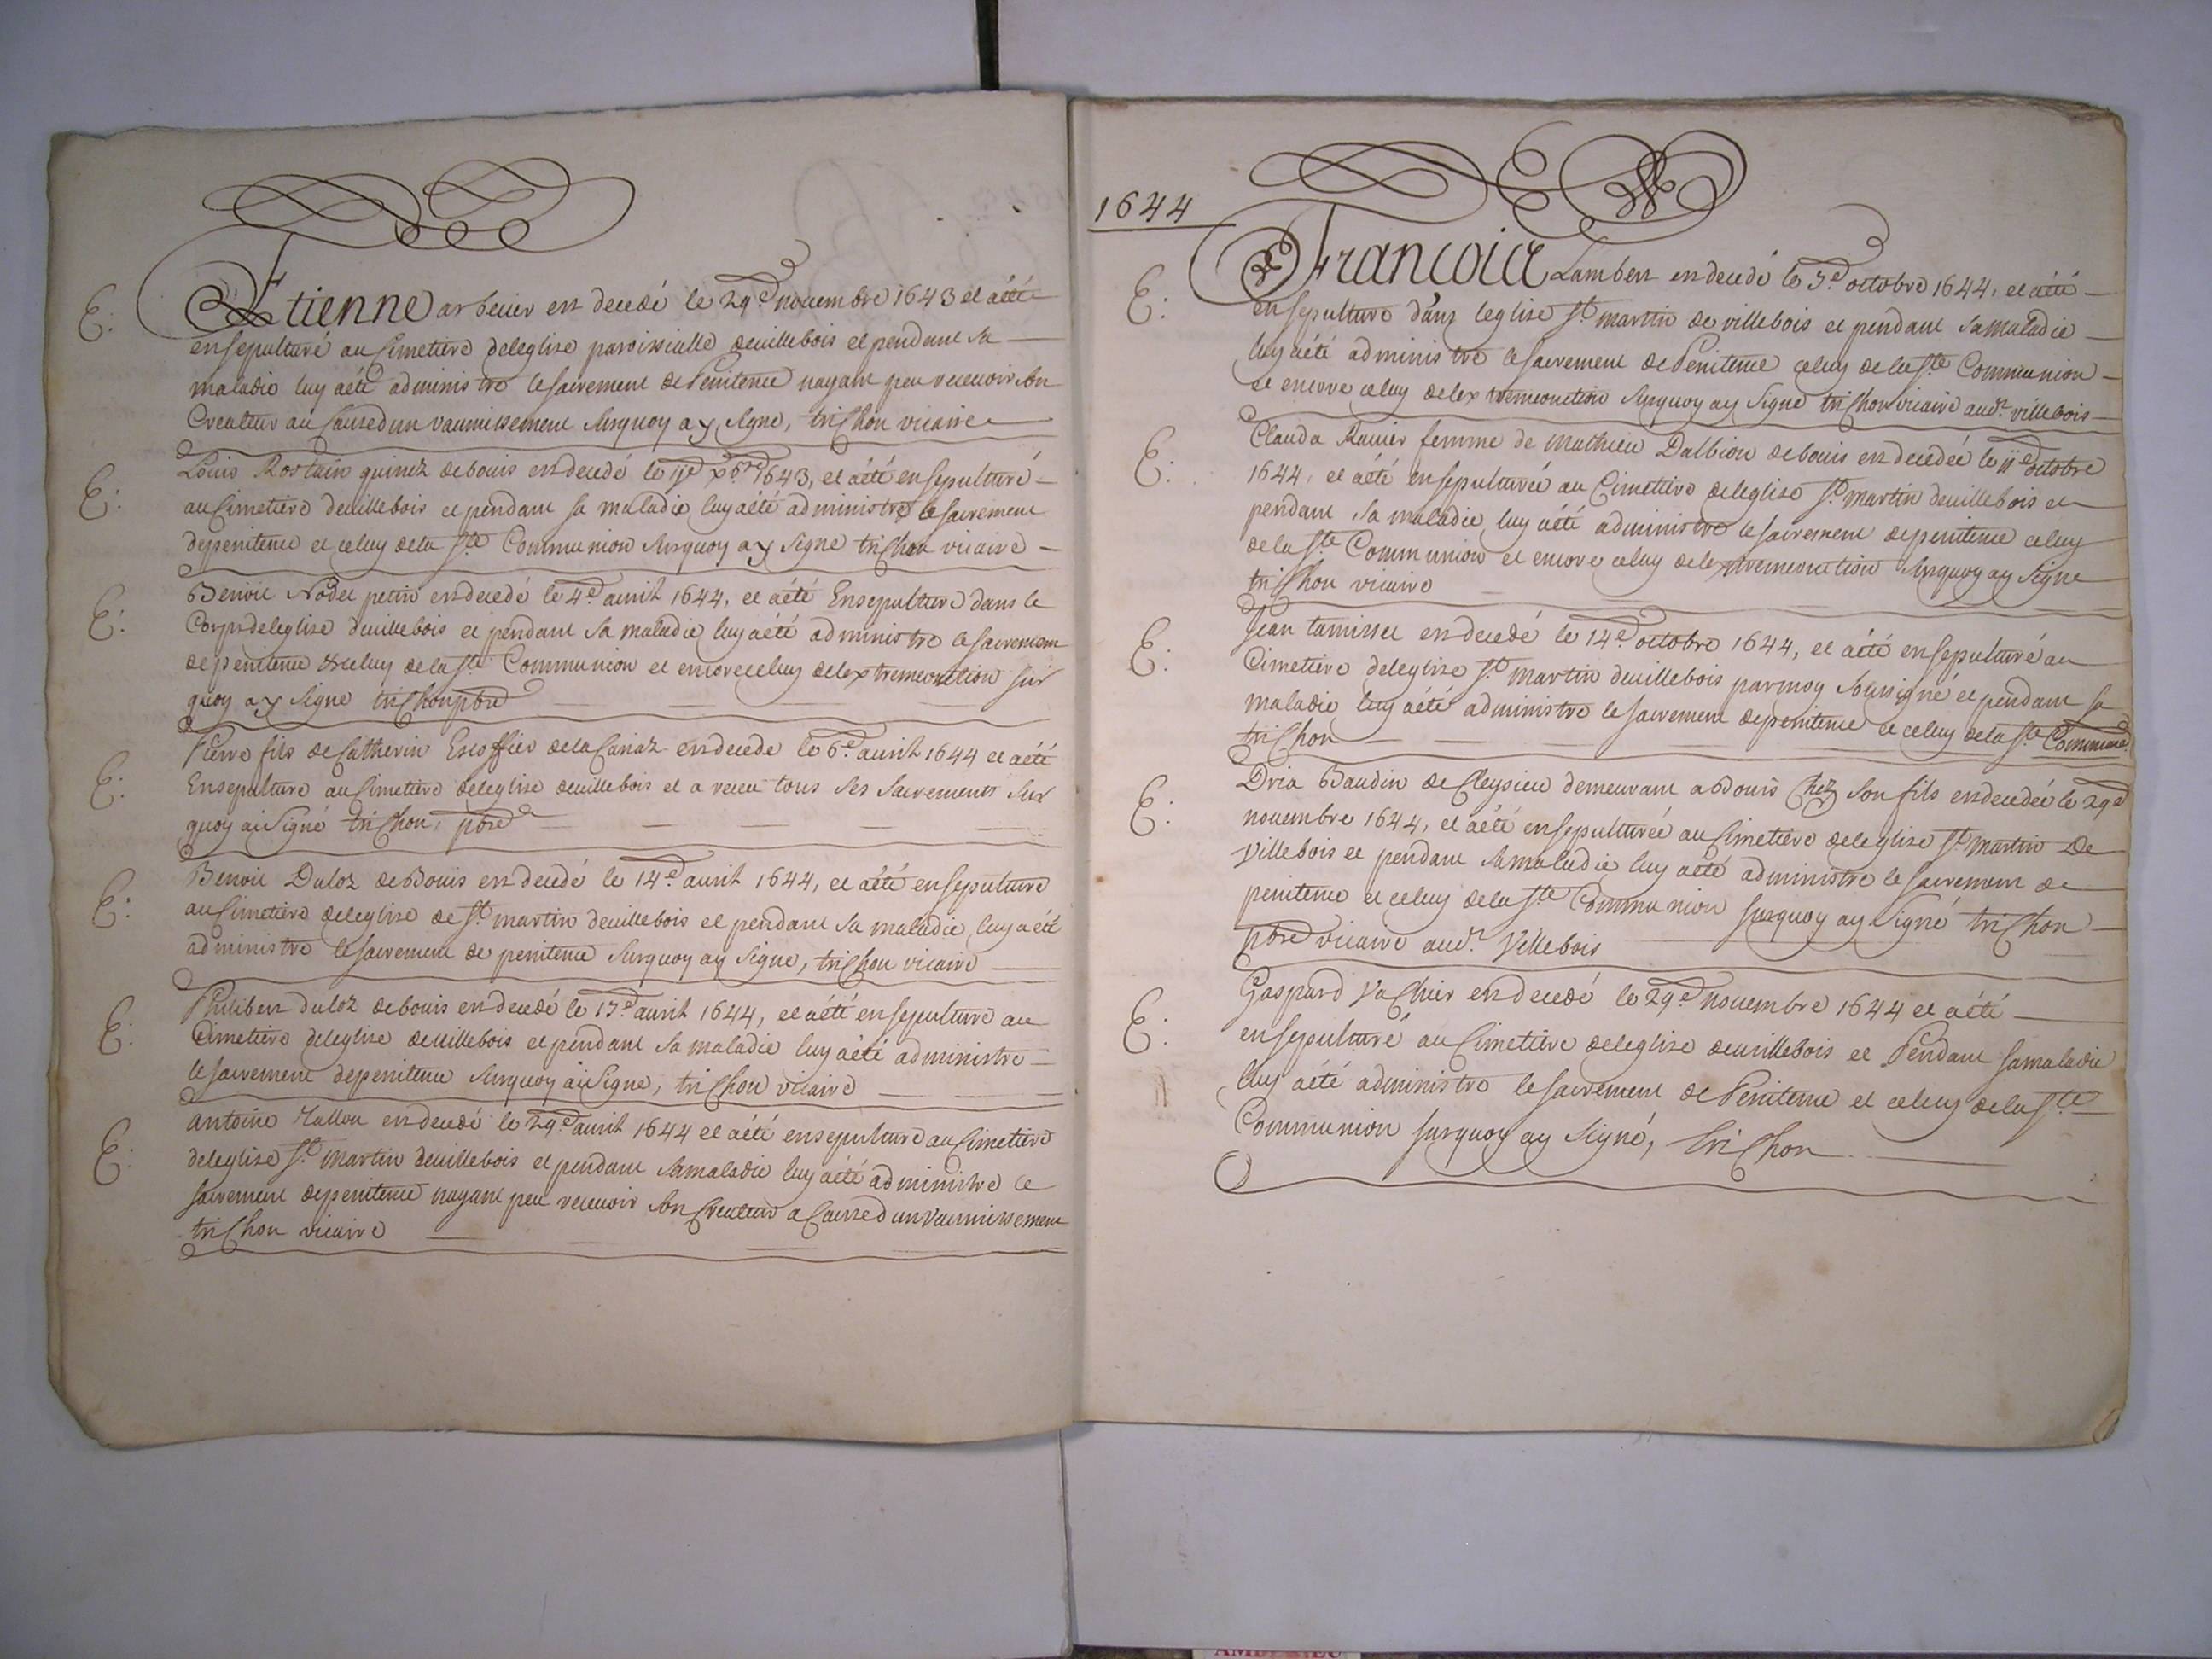 E: Etienne arbeuer est decedé le 29e novembre 1643 et aété
ensepulturé au Cimetiere deleglise paroissialle deuillebois et pendant sa
maladie luy aété administre lesacrement de Penitence nayant peu recevoir son
Createur au Caused un vaumissement surquoy ay signe, trichon vicaire
E: Louis Rostain de bouis est decedé le xbre 1643, et aété ensepulturé
au Cimetiere deuillebois et pendant sa maladie luy aété administre lesacrement
depenitence et celuy dela Ste Communion surquoy ay signe trichon vicaire
E: Benoit Nodet petit est decedé le 4e auril 1644, et aété Ensepulture dans le
Corps deleglise deuillebois et pendant sa maladie luy aété administre le sacrement
de penitence & celuy dela Ste Communion et encorecelluy delextremeonction sur
quoy ay signe trichon pbre
E: Pierre fils de Catherin Escoffier dela est decede le 6e auril 1644 et aété
Ensepulture au Cimetiere deleglise deuillebois et a receu tous ses sacrements sur
quoy ai signé trichon, pbre
E: Benoit Duloz de Bouis est decedé le 14e auril 1644, et aété ensepulture
au Cimetiere deleglise de St martin deuillebois et pendant sa maladie luy a été
administre lesacrement de penitence surquoy ay signe, trichon vicaire
E: Philibert duloz debouis est decedé le auril 1644, et aété ensepulture au
Cimetiere deleglise deuillebois et pendant sa maladie luy aété administre
lesacrement depenitence surquoy ai signe, trichon vicaire
E: Antoine est decedé le 29e auril 1644 et aété ensepulture au Cimetiere
deleglise St martin deuillebois et pendant samaladie luy aété administre le
sacrement depenitence nayant peu recevoir son Createur a Caused un vaumissement
trichon vicaire
1644
E: Francois Lambert est decedé le octobre 1644, et aété
ensepulture dans leglise St martin de villebois et pendant samaladie
luy aété administre lesacrement de Penitence celuy delaSte Communion
et encore celuy delextremeonction surquoy ay signe trichon vicaire aud. villebois
E: Clauda Rauier femme de Mathieu Dalbion debouis est decedée le 11e octobre
1644, et aété ensepulturée au Cimetiere deleglise St martin deuillebois et
pendant sa maladie luy aété administre lesacrement depenitence celuy
dela Ste Communion et encore celuy delextremeonction surquoy ay signe
trichon vicaire
E: Jean tamisset est decedé le 14e octobre 1644, et aété ensepulturé au
Cimetiere deleglise St martin deuillebois parmoy soussigné et pendant sa
maladie luy aété administre lesacrement depenitence et celuy dela Ste Commun
trichon
E: Dria Baudin de Cleysieu demeurant a Bouis Chez son fils est decedée le 29e
novembre 1644, et aété ensepulturée au Cimetiere deleglise St martin De
Villebois et pendant samaladie luy aété administre le sacrement de
penitence et celuy dela Ste Communion surquoy ay signé trichon
pbre vicaire aud. Villebois
E: Gaspard Vachier est decedé le 29e novembre 1644 et aété
ensepulturé au Cimetiere deleglise deuillebois et Pendant samaladie
luy aété administre lesacrement dePenitence et celuy delaSte
Communion surquoy ay signé, trichon